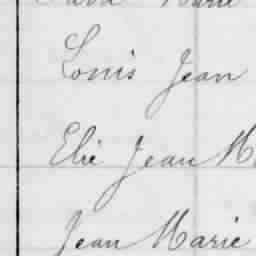 Marie
Louis Jean
Elie Jean M
Jean Marie